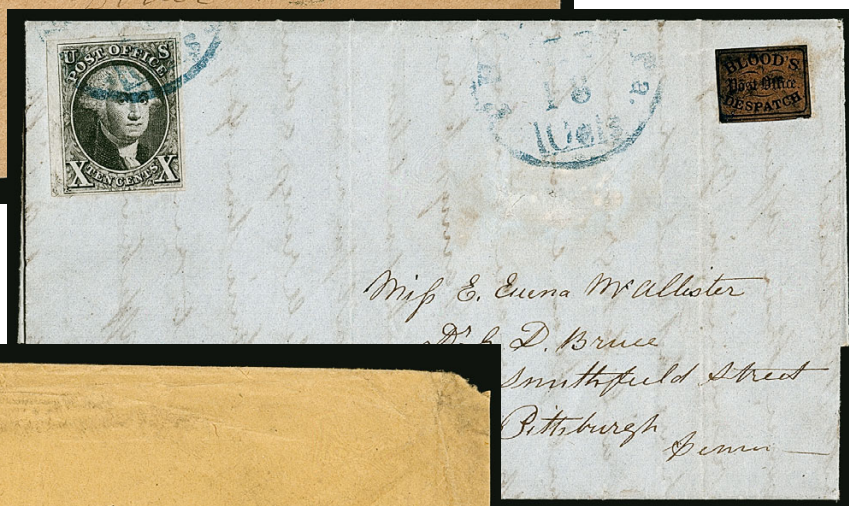 U S
POST OFFICE
X TEN CENTS X
Pa.
18
10 cts
BLOOD'S
Post Office
DESPATCH
Miss E. Euena McAllister
Dr D. Bruce
Smithfield Street
Pittsburgh
Penna